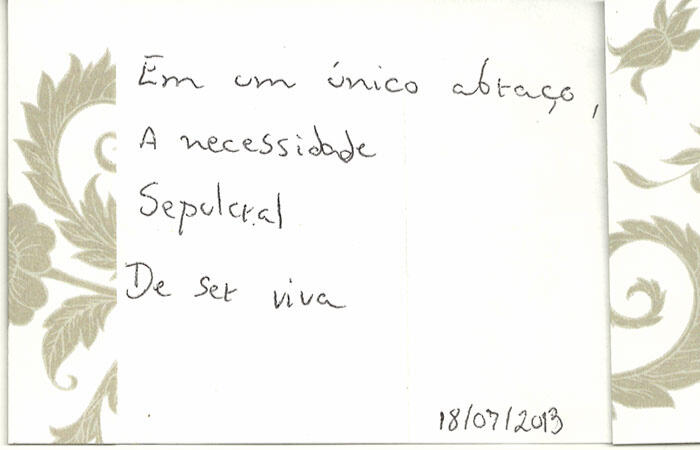 Em um único abraço,
A necessidade
Sepulcral
De ser viva
18/07/2013